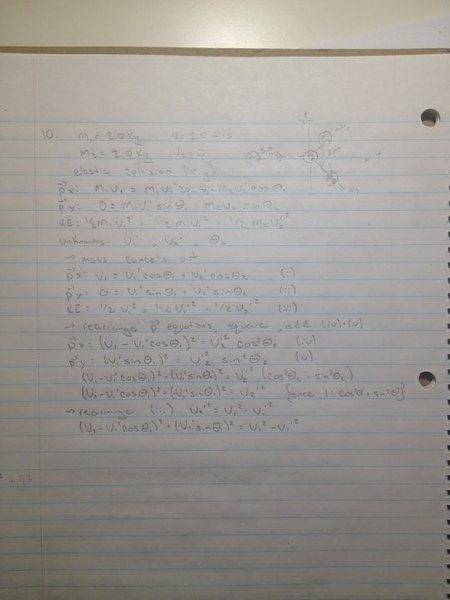 10. m₁ = 2.0 kg v₁ = 3.0 m/s
m₂ = 2.0 kg v₂ = 0
elastic collision (x, y)
p⃗x: m₁v₁ = m₁v₁'cosθ₁ + m₂v₂'cosθ₂
p⃗y: 0 = m₁v₁'sinθ₁ + m₂v₂'sinθ₂
KE: 1/2 m₁v₁² = 1/2 m₁v₁'² + 1/2 m₂v₂'²
unknowns: v₁' v₂' θ₂
→ mass cancels out
p⃗x: v₁ = v₁'cosθ₁ + v₂'cosθ₂ (i)
p⃗y: 0 = v₁'sinθ₁ + v₂'sinθ₂ (ii)
KE: 1/2 v₁² = 1/2 v₁'² + 1/2 v₂'² (iii)
→ rearrange p⃗ equations, square, add (iv)+(v)
p⃗x: (v₁ - v₁'cosθ₁)² = v₂'² cos²θ₂ (iv)
p⃗y: (v₁'sinθ₁)² = v₂'² sin²θ₂ (v)
(v₁ - v₁'cosθ₁)² + (v₁'sinθ₁)² = v₂'² (cos²θ₂ + sin²θ₂)
(v₁ - v₁'cosθ₁)² + (v₁'sinθ₁)² = v₂'² {since 1 = cos²θ + sin²θ}
→ rearrange (iii) v₂'² = v₁² - v₁'²
(v₁ - v₁'cosθ₁)² + (v₁'sinθ₁)² = v₁² - v₁'²